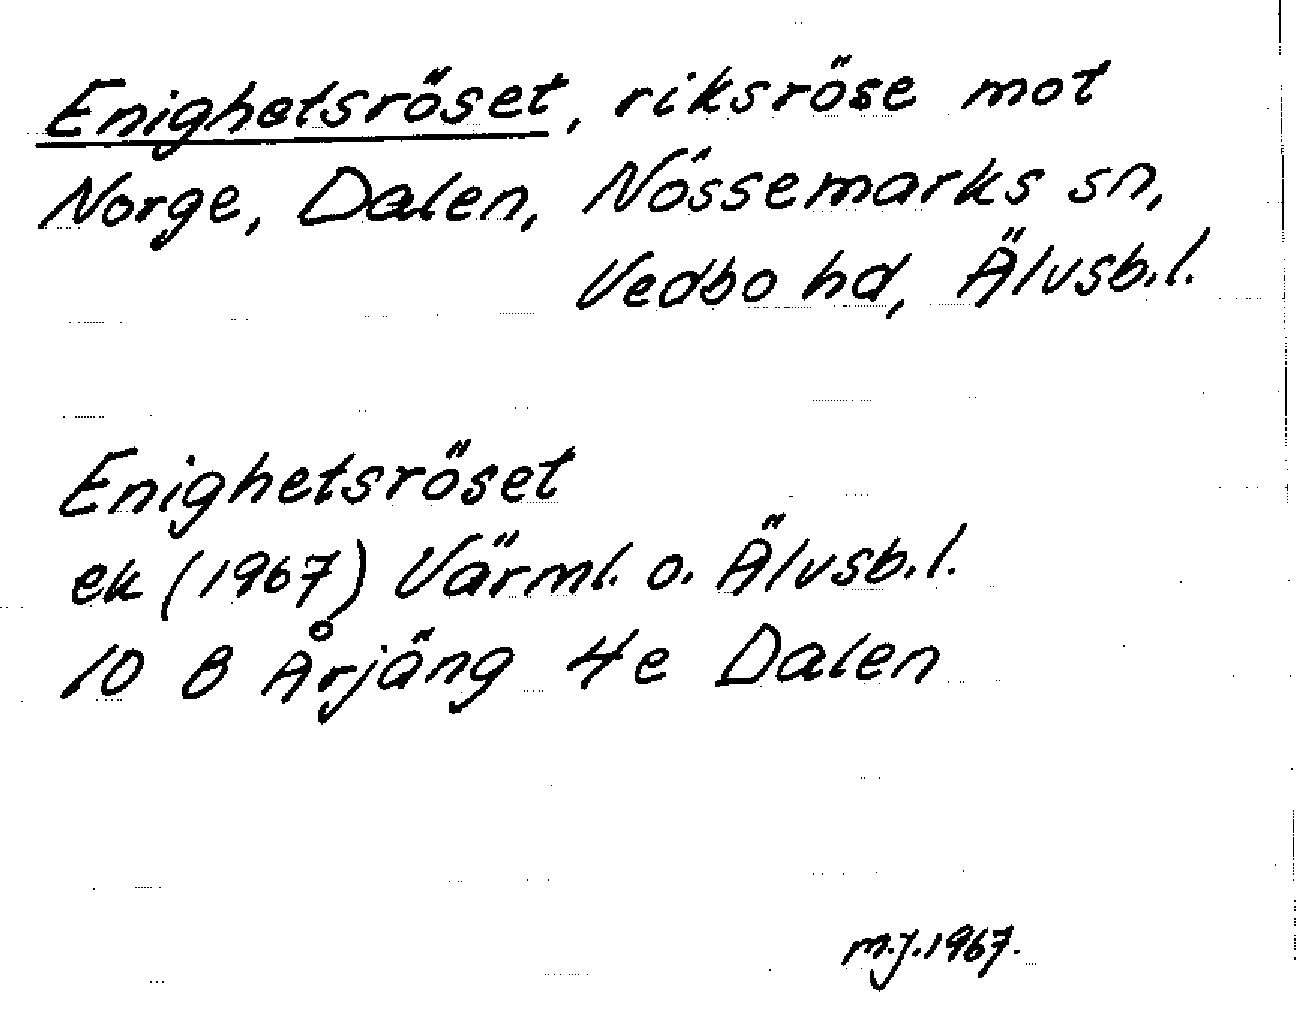 Enighetsröset, riksröse mot
Norge, Dalen, Nössemarks sn,
Vedbo hd, Älvsb.l.
Enighetsröset
ek (1967) Värml. o. Älvsb.l.
10 B Årjäng 4e Dalen
m.j.1967.